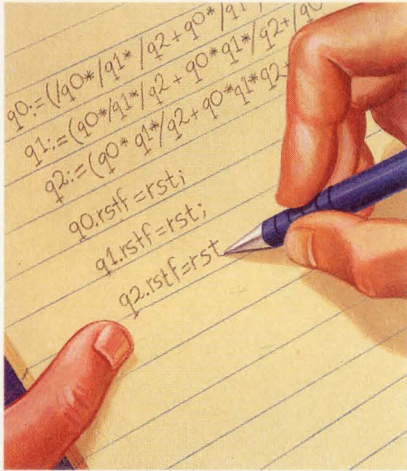 q0:=(/q0*/q1*/q2+q0*/q1/
q1:=(q0*/q1*/q2+q0*q1*/q2+/q0
q2:=(q0*q1*/q2+q0*q1*q2+
q0.rstf=rst;
q1.rstf=rst;
q2.rstf=rst